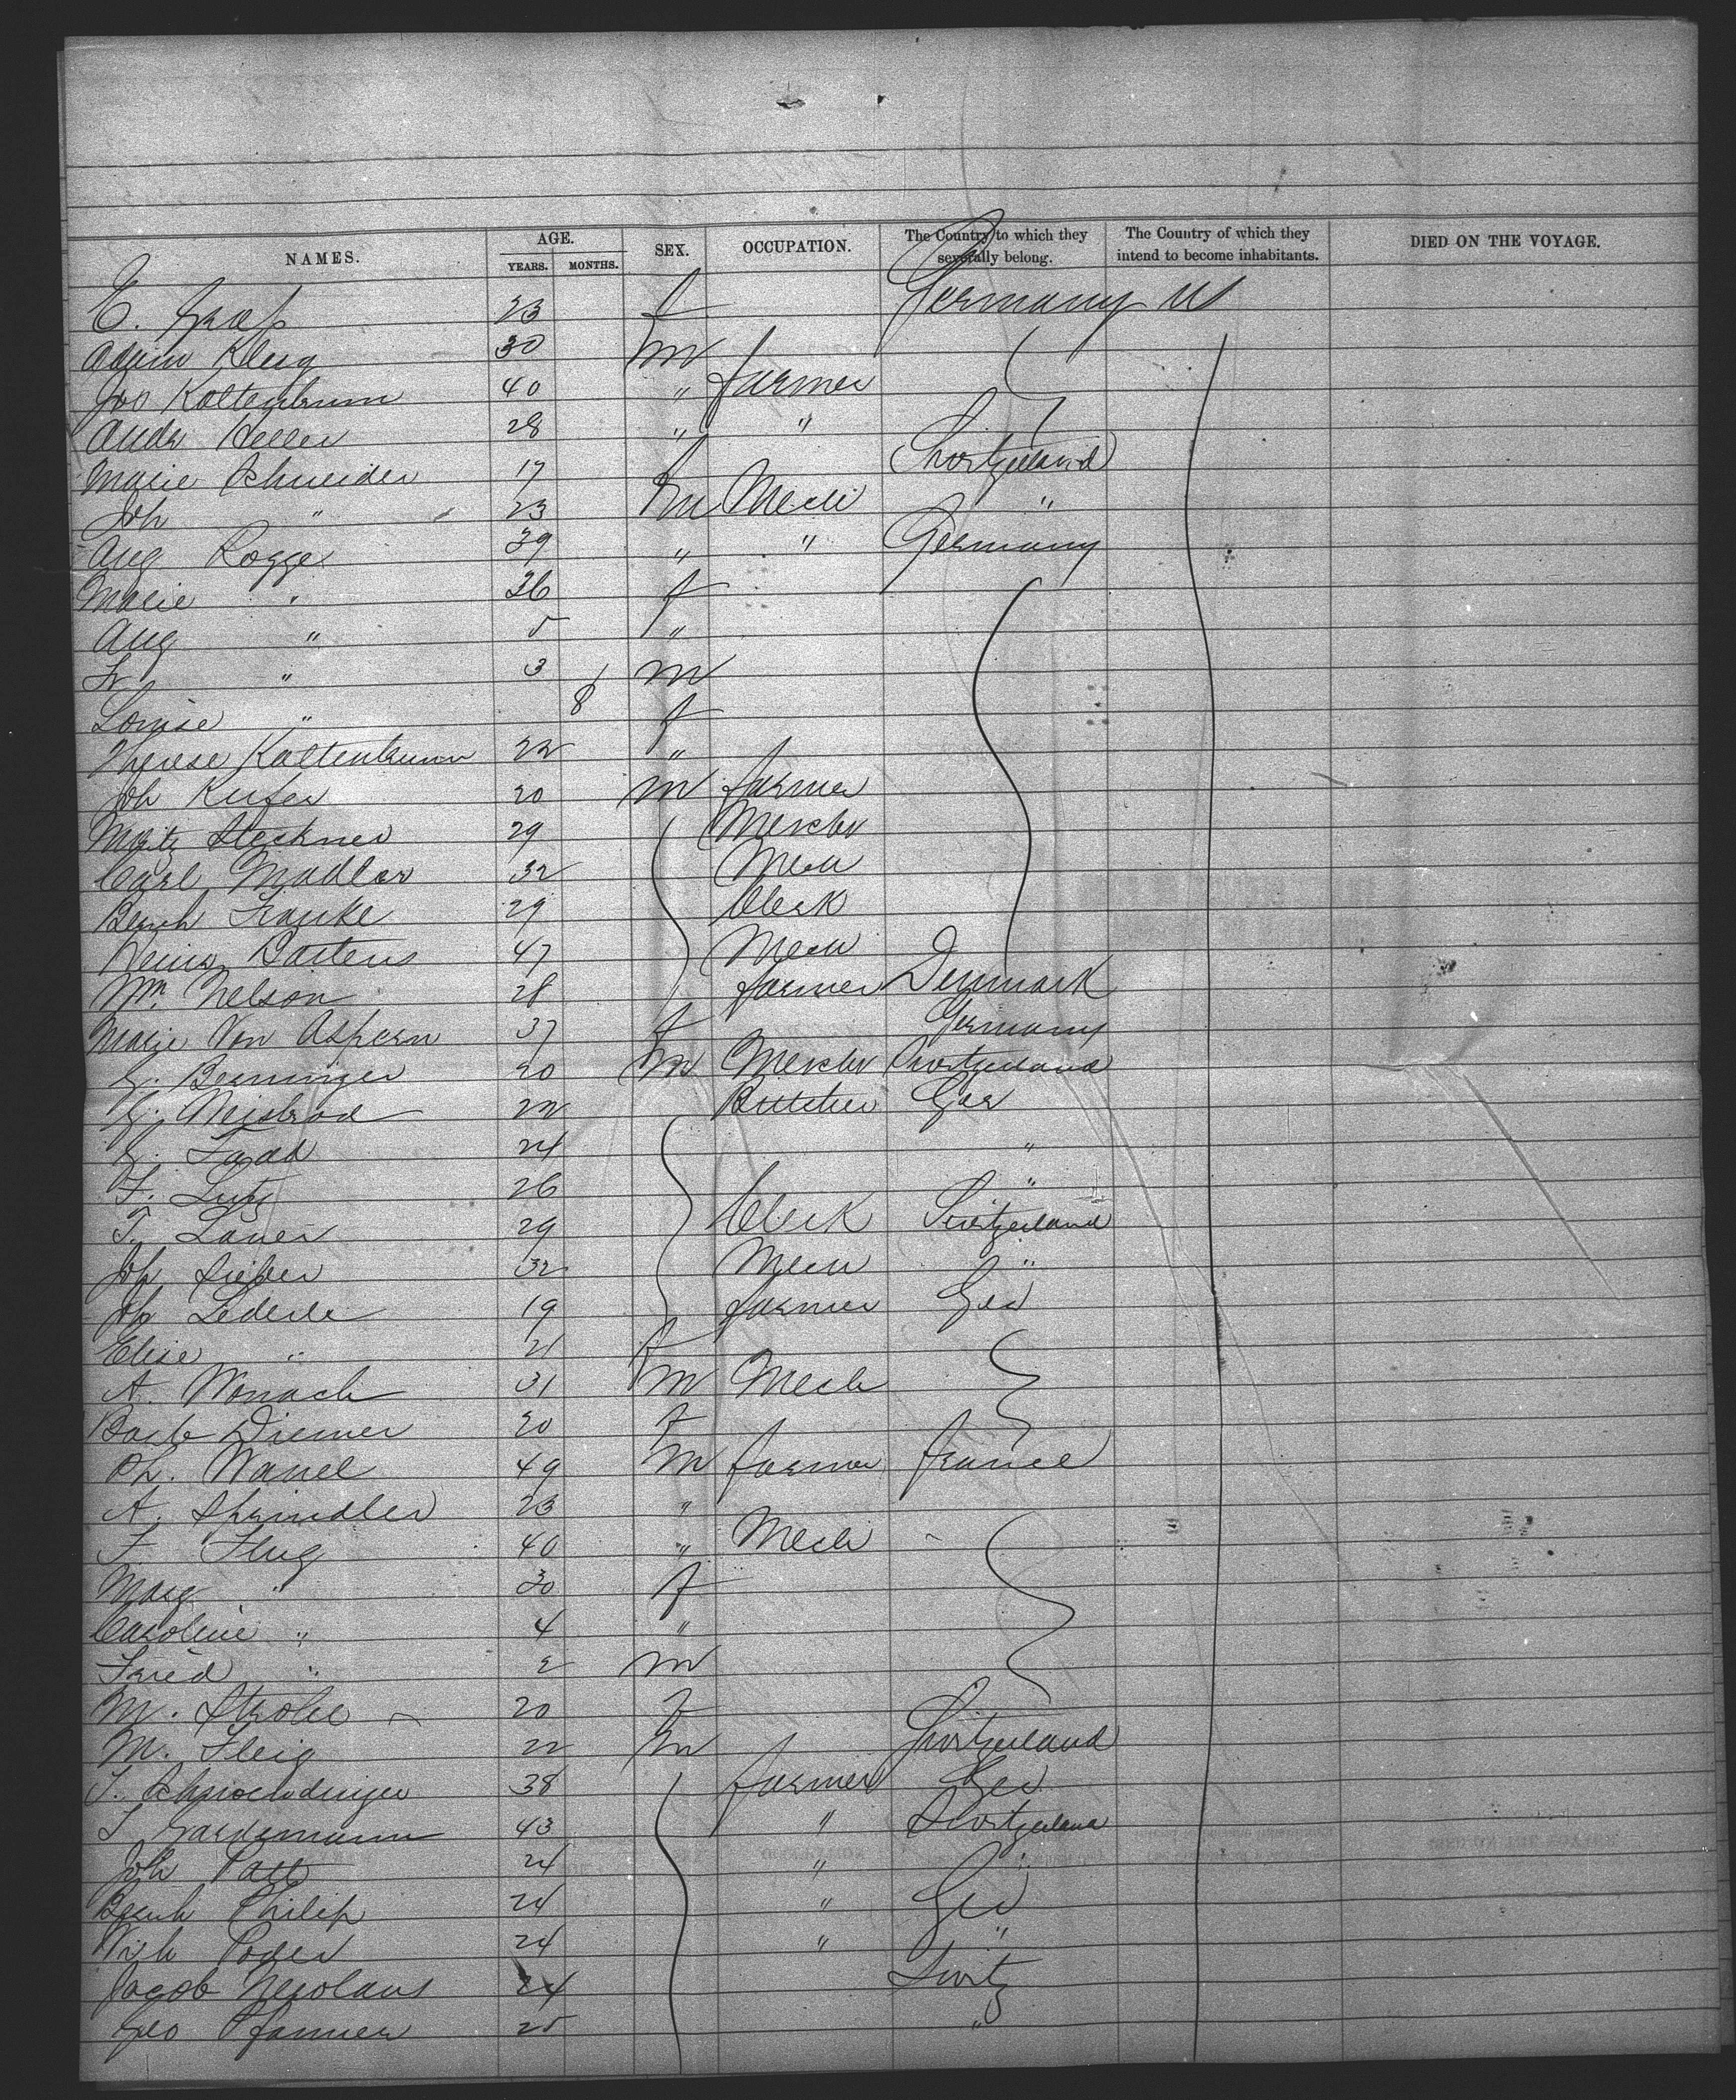 NAMES. AGE. YEARS. MONTHS. SEX. OCCUPATION. The Country to which they severally belong. The Country of which they intend to become inhabitants. DIED ON THE VOYAGE.
E. Graf 23 f Germany US
Adam Klug 30 m
Joo Kaltenbrunn 40 " farmer
Andr Heller 28 " "
Marie Schneider 17 f Switzerland
Joh " 23 m Mech "
Aug Rogge 39 " " Germany
Marie " 36 f
Aug " 5 "
Fr " 3 m
Louise " 8 f
Therese Kaltenbrunn 22 "
Joh Kufer 20 m farmer
Moritz Steckner 29 Merchr
Carl Madler 32 Mech
Bernh Franke 29 Clerk
Heinr Bartens 47 Mech
Wm Nelson 28 farmer Denmark
Marie Von Aspern 37 f Germany
G. Berninger 20 m Merchr Switzerland
G. Weisbrod 22 Butcher Ger
G. 24 "
F. Lutz 26 "
T. Lauer 29 Clerk Switzerland
Joh Sieber 32 Mech "
Joh Lederle 19 farmer Ger
Elise " 21 f
A. Worrach 31 m Mech
Barb Diemer 20 f
Ph. Wanel 49 m farmer France
A. Sprindler 23 "
F. Flug 40 " Mech
Marg " 30 f
Caroline " 4 "
Fried " 2 m
M. Strobe 20 f
M. Fleig 22 m Switzerland
T. 38 farmer Ger
J 43 " Switzerland
Joh Patt 24 " "
Bernh Philip 24 " Ger
Nich Poder 24 " "
Jacob Nicolaus 24 Switz
Geo Pfanner 25 "